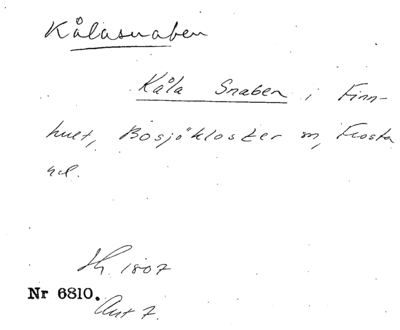 Kålasnaben
Kåla Snaben i Finn-
hult, Bosjökloster sn, Frosta
hd.
Sk. 1807
Nr 6810.
Avt 7.